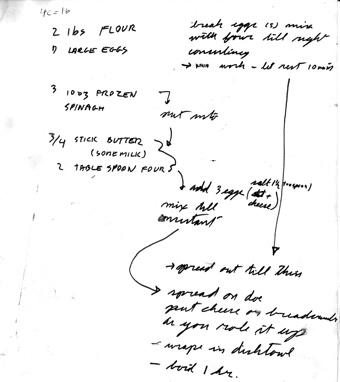 4C = 1 lb
2 lbs FLOUR
7 LARGE EGGS
break eggs (5) mix
with flour till right
consistency
→ work - let rest 10 min
3 10 oz FROZEN
SPINACH
3/4 STICK BUTTER
(SOME MILK)
2 TABLE SPOON FOUR
add 3 eggs (salt + cheese)
mix till
consistant
→ spread out till thin
spread on doe
put cheese on breadcrumbs
as you role it up
- wrape in dishtowl
- boil 1 hr.